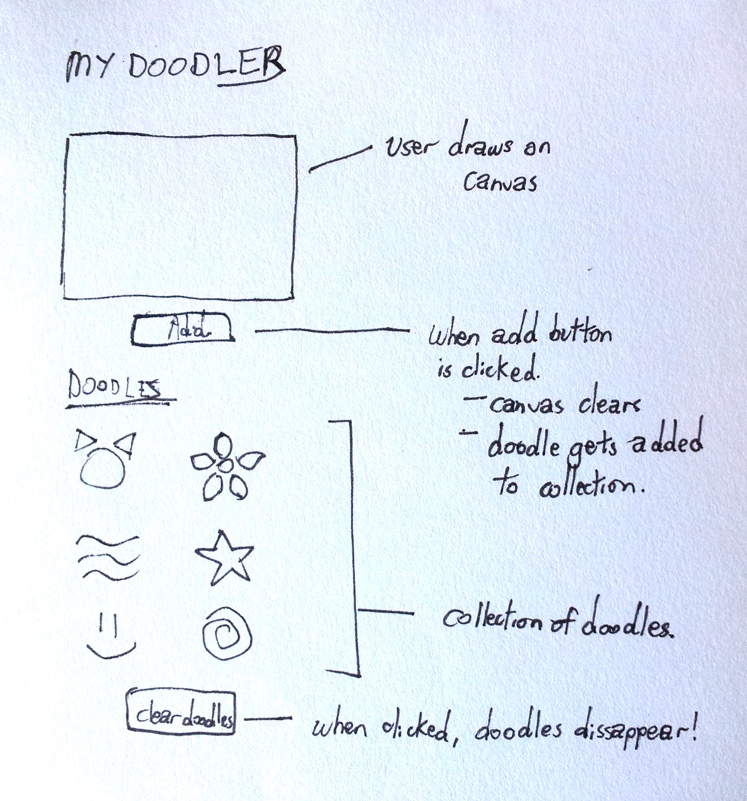 MY DOODLER
User draws on
canvas
Add
when add button
is clicked.
- canvas clears
- doodle gets added
to collection.
DOODLES
collection of doodles.
clear doodles
when clicked, doodles dissappear!